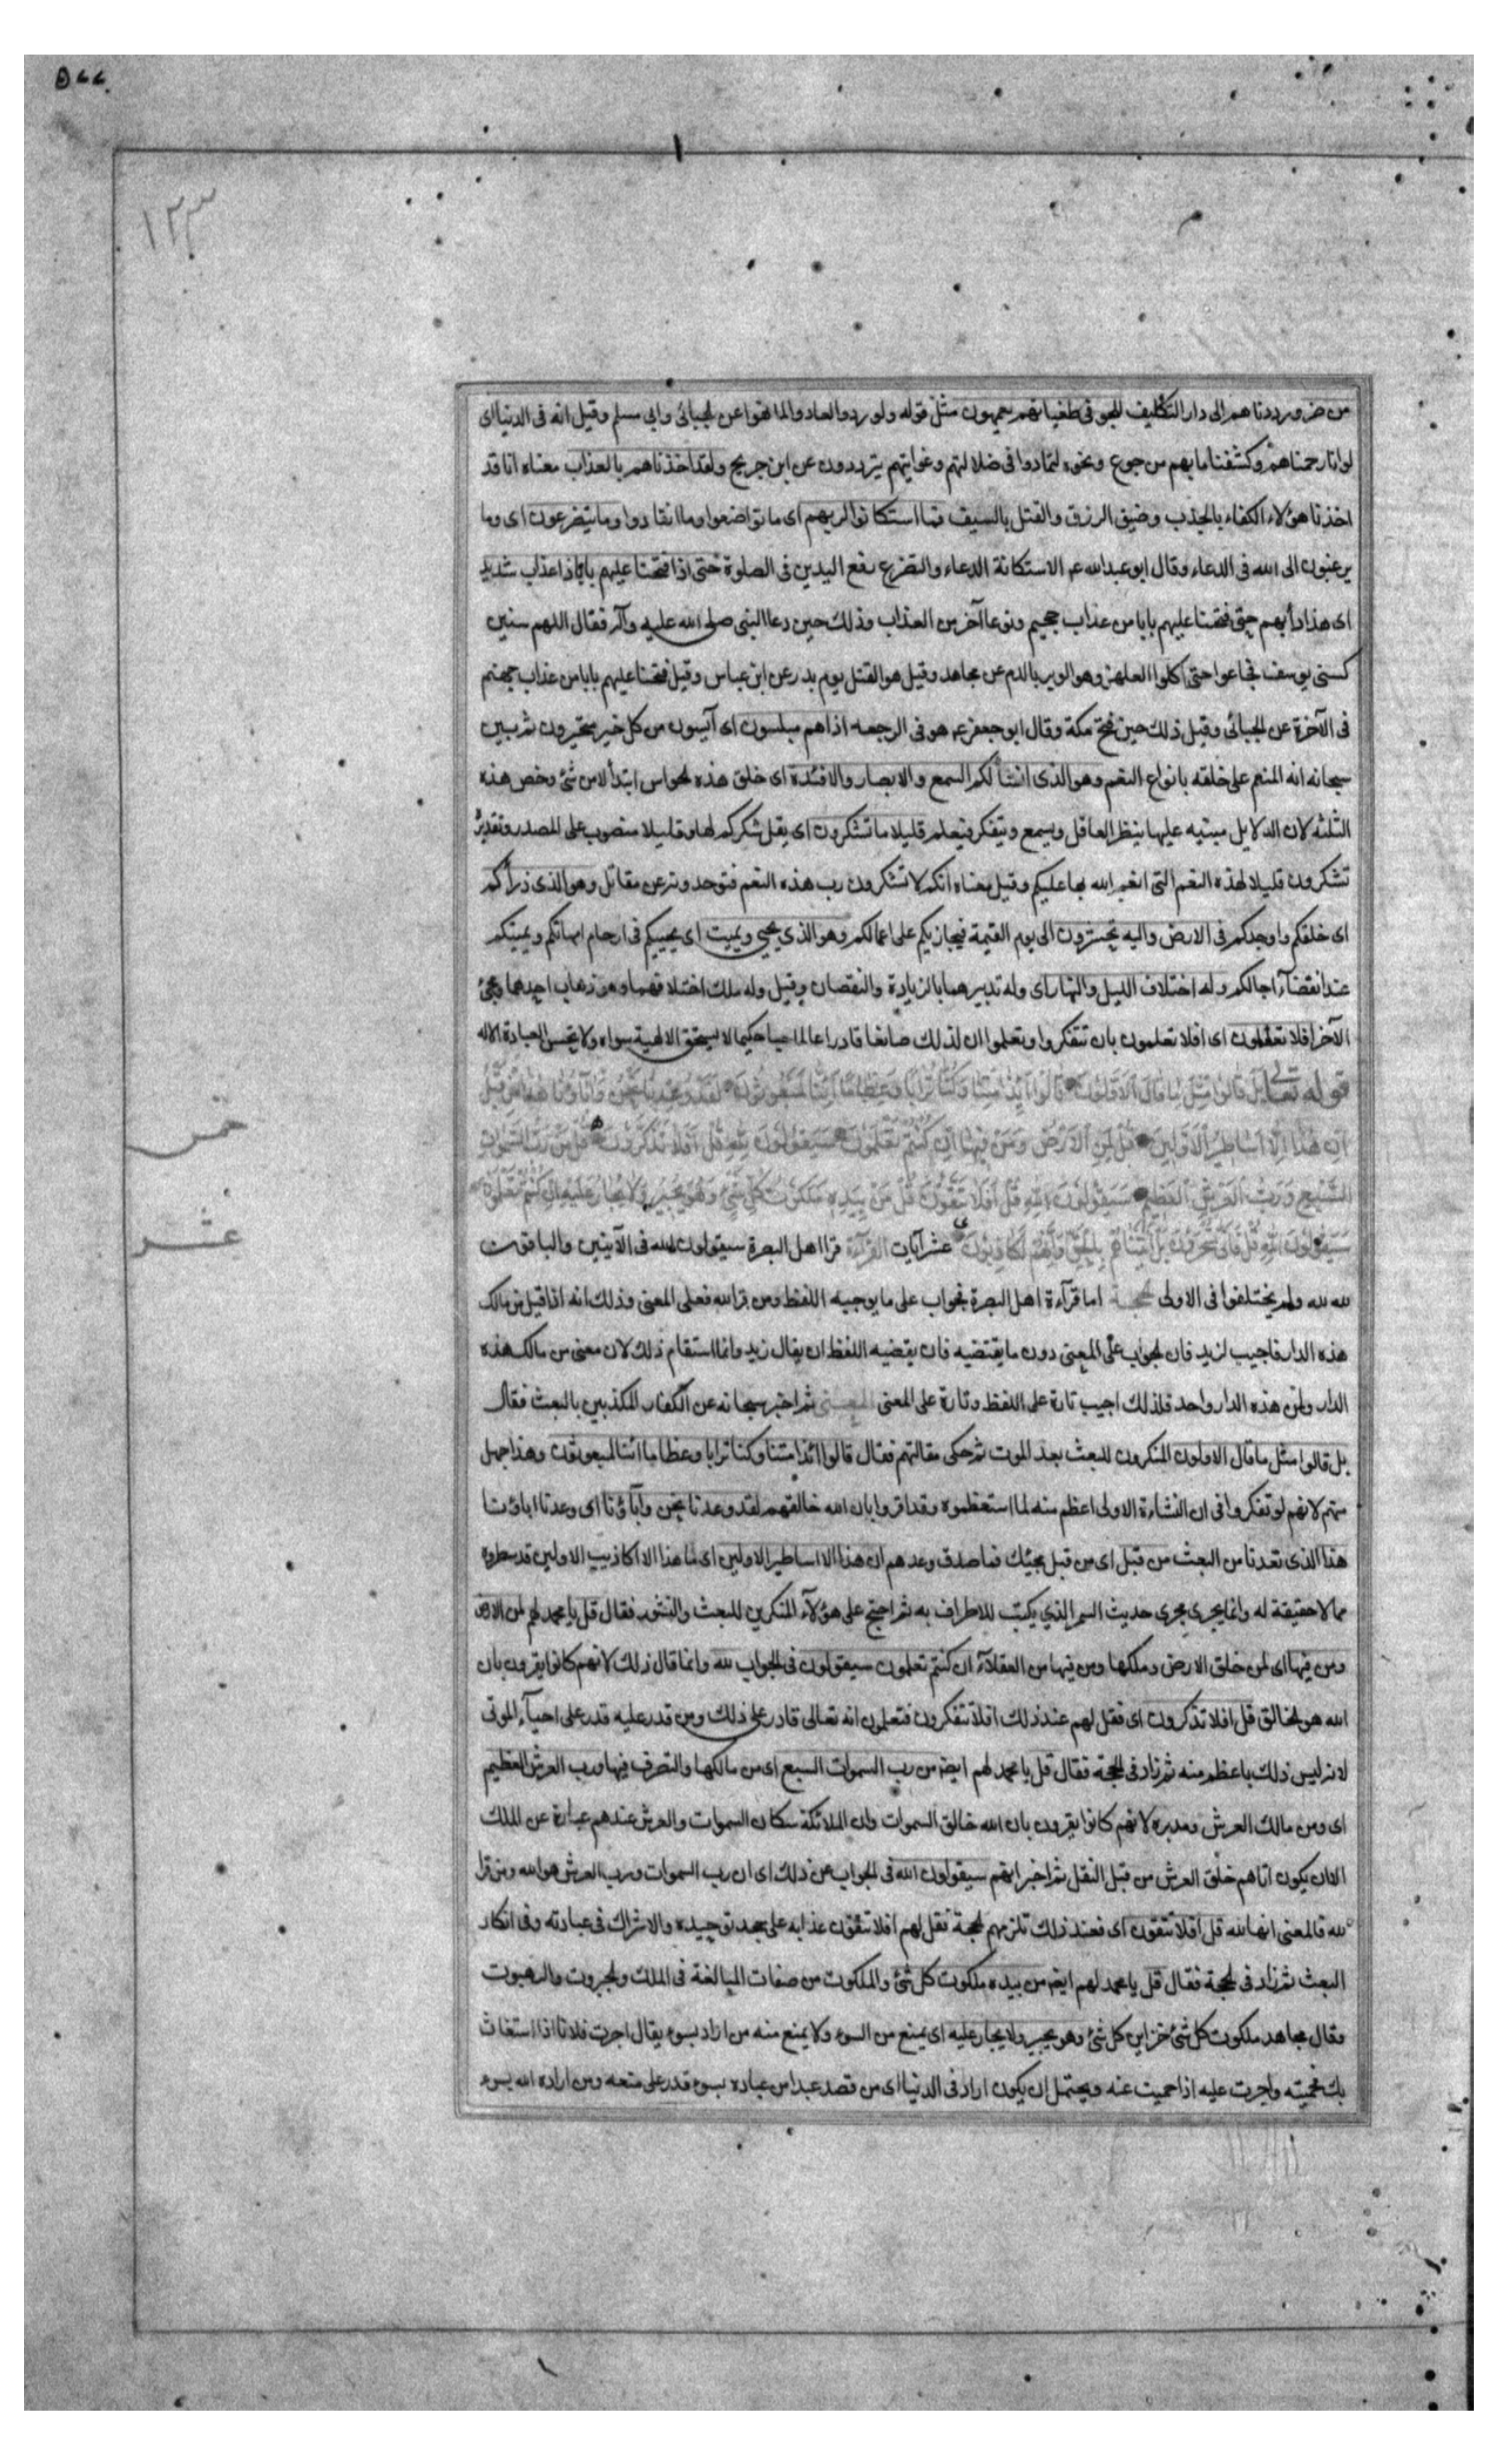 ٥٤٤
١٢٣
من ضر ورددناهم الى دار التكليف للجوا فى طغيانهم يعمهون مثل قوله ولو ردوا لعادوا لما نهوا عن الجبائى وابى مسلم وقيل انه فى الدنيا اى
لو انا رحمناهم وكشفنا ما بهم من جوع ونحوه لتمادوا فى ضلالتهم وغوايتهم يترددون عن ابن جريج ولقد اخذناهم بالعذاب معناه انا قد
اخذنا هؤلاء الكفار بالجذب وضيق الرزق والقتل بالسيف فما استكانوا لربهم اى ما تواضعوا وما انقادوا وما يتضرعون اى وما
يرغبون الى الله فى الدعاء وقال ابو عبدالله عم الاستكانة الدعاء والتضرع رفع اليدين فى الصلوة حتى اذا فتحنا عليهم بابا ذا عذاب شديد
اى هذا دأبهم حتى فتحنا عليهم بابا من عذاب جحيم ونوعا آخر من العذاب وذلك حين دعا النبى صلى الله عليه وآله فقال اللهم سنين
كسنى يوسف فجاعوا حتى اكلوا العلهز وهو الوبر بالدم عن مجاهد وقيل هو القتل يوم بدر عن ابن عباس وقيل فتحنا عليهم بابا من عذاب جهنم
فى الآخرة عن الجبائى وقيل ذلك حين فتح مكة وقال ابو جعفر عم هو فى الرجعه اذا هم مبلسون اى آيسون من كل خير متحيرون ثم بين
سبحانه انه المنعم على خلقه بانواع النعم وهو الذى انشأ لكم السمع والابصار والافئدة اى خلق هذه الحواس ابتدأ لا من شئ وخص هذه
الثلثه لان الدلايل مبنيه عليها ينظر العاقل ويسمع ويتفكر فيعلم قليلا ما تشكرون اى يقل شكركم لها وقليلا منصوب على المصدر وتقديره
تشكرون قليلا لهذه النعم التى انعم الله بها عليكم وقيل معناه انكم لا تشكرون رب هذه النعم فتوحدونه عن مقاتل وهو الذى ذرأكم
اى خلقكم واوجدكم فى الارض واليه تحشرون الى يوم القيمة فيجازيكم على اعمالكم وهو الذي يحيي ويميت اى يحييكم فى ارحام امهاتكم ويميتكم
عند انقضآء آجالكم وله اختلاف الليل والنهار اى وله تدبيرهما بالزيادة والنقصان وقيل وله ملك اختلافهما وهو ذهاب احدهما ومجئ
الآخر افلا تعقلون اى افلا تعلمون بان تتفكروا وتعلموا ان لذلك صانعا قادرا عالما حيا حكيما لا يستحق الالهية سواه ولا تحسن العبادة الا له
قوله تعالى بل قالوا مثل ما قال الاولون قالوا أئذا متنا وكنا ترابا وعظاما أئنا لمبعوثون لقد وعدنا نحن وآباؤنا هذا من قبل
ان هذا الا اساطير الاولين قل لمن الارض ومن فيها ان كنتم تعلمون سيقولون لله قل افلا تذكرون قل من رب السموات
السبع ورب العرش العظيم سيقولون الله قل افلا تتقون قل من بيده ملكوت كل شئ وهو يجير ولا يجار عليه ان كنتم تعلمون
سيقولون لله قل فانى تسحرون بل اتيناهم بالحق وانهم لكاذبون عشر آيات القرآءة قرا اهل البصرة سيقولون الله فى الآيتين والباقون
لله لله ولم يختلفوا فى الاولى الحجة اما قرآءة اهل البصرة فجواب على ما يوجبه اللفظ ومن قرا لله فعلى المعنى وذلك انه اذا قيل من مالك
هذه الدار فاجيب لزيد فان الجواب على المعنى دون ما يقتضيه فان يقضيه اللفظ ان يقال زيد وانما استقام ذلك لان معنى من مالك هذه
الدار ولمن هذه الدار واحد فلذلك اجيب تارة على اللفظ وتارة على المعنى المعنى ثم اخبر سبحانه عن الكفار المكذبين بالبعث فقال
بل قالوا مثل ما قال الاولون المنكرون للبعث بعد الموت ثم حكى مقالتهم فقال قالوا ائذا متنا وكنا ترابا وعظاما ائنا لمبعوثون وهذا جهل
منهم لانهم لو تفكروا فى ان النشاءة الاولى اعظم منه لما استعظموه وقد اقروا بان الله خالقهم لقد وعدنا نحن وآباؤنا اى وعدنا اباؤنا
هذا الذى تعدنا من البعث من قبل اى من قبل مجيئك فما صدق وعدهم ان هذا الا اساطير الاولين اى ما هذا الا اكاذيب الاولين قد سطروه
مما لا حقيقة له وانما يجرى مجرى حديث السمر الذي يكتب للاطراف به ثم احتج على هؤلآء المنكرين للبعث والنشور فقال قل يا محمد لهم لمن الارض
ومن فيها اى لمن خلق الارض وملكها ومن فيها من العقلآء ان كنتم تعلمون سيقولون فى الجواب لله وانما قال ذلك لانهم كانوا يقرون بان
الله هو الخالق قل افلا تذكرون اى فقل لهم عند ذلك افلا تتفكرون فتعلمون انه تعالى قادر على ذلك ومن قدر عليه قدر على احيآء الموتى
لانه ليس ذلك باعظم منه ثم زاد فى الحجة فقال قل يا محمد لهم ايضا من رب السموات السبع اى من مالكها والتصرف فيها ورب العرش العظيم
اى ومن مالك العرش ومدبره لانهم كانوا يقرون بان الله خالق السموات وان الملائكة سكان السموات والعرش عندهم عبارة عن الملك
الا ان يكون اتاهم خلق العرش من قبل النقل ثم اخبر انهم سيقولون الله فى الجواب عن ذلك اى ان رب السموات ورب العرش هو الله ومن قرا
لله فالمعنى انها لله قل افلا تتقون اى فعند ذلك تلزمهم الحجة فقل لهم افلا تتقون عذابه على جحد توحيده والاشراك فى عبادته وفى انكار
البعث ثم زاد فى الحجة فقال قل يا محمد لهم ايضا من بيده ملكوت كل شئ والملكوت من صفات المبالغة فى الملك والجبروت والرهبوت
وقال مجاهد ملكوت كل شئ خزاين كل شئ وهو يجير ولا يجار عليه اى يمنع من السوء ولا يمنع منه من اراد بسوء يقال اجرت فلانا اذا استغاث
بك فحميته واجرت عليه اذا حميت عنه ويحتمل ان يكون اراد فى الدنيا اى من قصد عبدا من عباده بسوء قدر على منعه ومن اراده الله بسوء
خمس
عشر